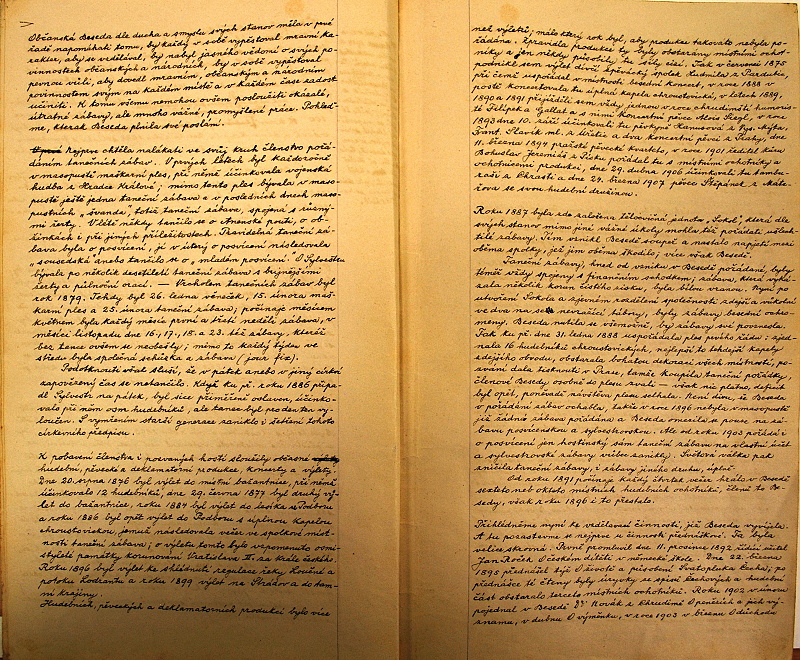 Občanská Beseda dle ducha a smyslu svých stanov měla v prvé
řadě napomáhati tomu, by každý v sobě vypěstoval mravní ka-
rakter, aby se vzdělával, by nabyl jasného vědomí o svých po-
vinnostech občanských a národních, by v sobě vypěstoval
pevnou vůli, aby dovedl mravním, občanským a národním
povinnostem svým na každém místě a v každém čase zadost
učiniti. K tomu všemu nemohou ovšem posloužiti okázalé,
útratné zábavy, ale mnoho vážné, promyšlené práce. Pohled-
me, kterak Beseda plnila své poslání.
Nejprve chtěla nalákati ve svůj kruh členstvo pořá-
dáním tanečních zábav. V prvých létech byl každoročně
v masopustě maškarní ples, při němž účinkovala vojenská
hudba z Hradce Králové; mimo tento ples bývala v maso-
pustě ještě jedna taneční zábava a v posledních dnech maso-
pustních „švanda", totiž taneční zábava, spojená s různý-
mi žerty. V létě někdy tančilo se o Anenské pouti, o ob-
žinkách i při jiných příležitostech. Pravidelná taneční zá-
bava byla o posvícení, jíž v úterý o posvícení následovala
„sousedská" anebo tančilo se o „mladém posvícení. O Sylvestru
bývala po několik desítiletí taneční zábava s nejrůznějšími
žerty a půlnoční orací. — Vrcholem tanečních zábav byl
rok 1879. Tehdy byl 26. ledna věneček, 15. února maš-
karní ples a 25. února taneční zábava; počínaje měsícem
květnem byla každý měsíc první a třetí neděli zábava; v
měsíci listopadu dne 15., 17., 18. a 23. též zábavy, kteréž
bez tance ovšem se neobešly; mimo to každý týden ve
středu byla společná schůzka a zábava (jour fix).
Podotknouti však sluší, že v pátek anebo v jiný církví
zapovězený čas se netančilo. Když ku př. roku 1886 připa-
dl Sylvestr na pátek, byl sice přiměřeně oslaven, účinko-
valo při něm osm hudebníků, ale tanec byl pro den ten vy-
loučen. S vymřením starší generace zaniklo i šetření tohoto
církevního předpisu.
K pobavení členstva i pozvaných hostí sloužily občasné
hudební, pěvecké a deklamatorní produkce, koncerty a výlety.
Dne 20. srpna 1876 byl výlet do místní bažantnice, při němž
účinkovalo 12 hudebníků, dne 29. června 1877 byl druhý vý-
let do bažantnice, roku 1884 byl výlet do lesíka u Podboru
a roku 1886 byl opět výlet do Podboru s úplnou kapelou
chroustovickou, jemuž následovala večer ve spolkové míst-
nosti taneční zábava; o výletu tomto bylo vzpomenuto osmi-
styleté památky korunování Vratislava II. za krále českého.
Roku 1896 byl výlet ke shlédnutí regulace řeky Loučné a
potoku Lodrantu a roku 1899 výlet na Strádov a do tam-
ní krajiny.
Hudebních, pěveckých a deklamatorních produkcí bylo více
než výletů; málo který rok byl, aby produkce takovéto nebyla po-
řádána. Zpravidla produkce ty byly obstarány místními ochot-
níky a jen někdy působily tu síly cizí. Tak v červenci 1875
podnikl sem výlet dívčí zpěvácký spolek Ludmila z Pardubic,
při čemž uspořádal v místnosti besední koncert, v roce 1888 v
postě koncertovala tu úplná kapela chroustovická, v letech 1889,
1890 a 1891 přijížděli sem vždy jednou v roce chrudimští humoris-
té Filípek a Gallat a s nimi koncertní pěvec Alois Siegl, v roce
1893 dne 10. září účinkovali tu pěvkyně Hanusová z Vys. Mýta,
Frant. Slavík ml. z Uhřetic a dva koncertní pěvci z Prahy, dne
11. března 1894 pražské pěvecké kvarteto, v roce 1901 ředitel kůru
Bohuslav Jeremiáš z Písku pořádal tu s místními ochotníky a
ochotnicemi produkci, dne 29. dubna 1906 účinkovali tu tambu-
raši z Chrasti a dne 24. března 1907 pěvec Štěpánek z Mate-
řova se svou hudební družinou.
Roku 1887 byla zde založena tělocvičná jednota „Sokol", která dle
svých stanov mimo jiné vážné úkoly mohla též pořádati ušlech-
tilé zábavy. Tím vznikl Besedě soupeř a nastalo napjetí mezi
oběma spolky, jež jim oběma škodilo; více však Besedě.
Taneční zábavy, hned od vzniku v Besedě pořádané, byly
téměř vždy spojeny s finančním schodkem; zábava, která vyká-
zala několik korun čistého zisku, byla bílou vranou. Nyní po
utvoření Sokola a zjevném rozdělení společnosti zdejší a vůkolní
ve dva na sebe nevražící tábory, byly zábavy besední ochro-
meny. Beseda nutila se všemožně, by zábavy své povznesla.
Tak ku př. dne 31. ledna 1888 uspořádala ples prvého řádu; zjed-
nala 16 hudebníků chroustovických, nejlepší to tehdejší kapely
zdejšího obvodu, obstarala bohatou dekoraci všech místností, po-
zvání dala tisknouti v Praze, tamže koupila taneční pořádky,
členové Besedy osobně do plesu zvali — však nic platno, deficit
byl opět, poněvadž návštěva plesu selhala. Není divu, že Beseda
v pořádání zábav ochabla, takže v roce 1896 nebyla v masopustě
již žádná zábava pořádána a Beseda omezila se pouze na zá-
bavu posvícenskou a sylvestrovskou. Ale od roku 1903 pořádal i
o posvícení jen hostinský sám taneční zábavu na vlastní účet
a sylvestrovské zábavy vůbec zanikly. Světová válka pak
zničila taneční zábavy, i zábavy jiného druhu, úplně.
Od roku 1891 počínaje každý čtvrtek večer hrálo v Besedě
sexteto neb okteto místních hudebních ochotníků, členů to Be-
sedy, však roku 1896 i to přestalo.
Přehlédněme nyní tu vzdělávací činnost, jíž Beseda vyvíjela.
A tu pozastavme se nejprve u činnosti přednáškové. Ta byla
velice skrovná. Prvně promluvil dne 11. prosince 1892 řídící učitel
Jan Roček O českém dítěti v německé škole. Dne 22. března
1893 přednášel týž O životě a působení Svatopluka Čecha; po
přednášce té čteny byly úryvky ze spisů Čechových a hudební
část obstaralo terceto místních ochotníků. Roku 1902 v únoru
pojednal v Besedě Dr Novák z Chrudimě O penězích a jich vý-
znamu, v dubnu O výměnku, v roce 1903 v březnu O důchodu